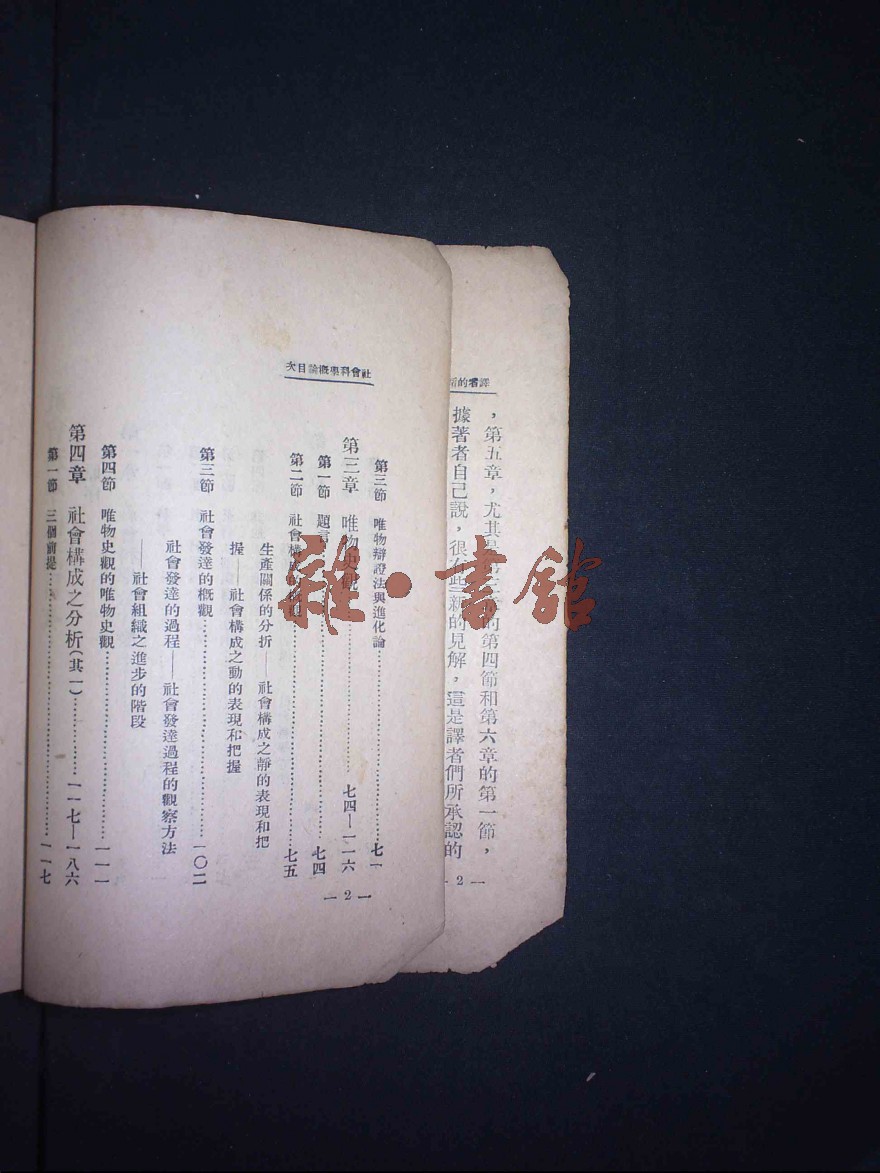 社會科學概論目次
第三節 唯物辯證法與進化論………七一
第三章 唯物史觀………七四—一一六
第一節 題言………七四
第二節 社會構成的概觀………七五
生產關係的分折——社會構成之靜的表現和把
握——社會構成之動的表現和把握
第三節 社會發達的概觀………一〇二
社會發達的過程——社會發達過程的觀察方法
——社會組織之進步的階段
第四節 唯物史觀的唯物史觀………一一一
第四章 社會構成之分析(其一)………一一七—一八六
第一節 三個前提………一一七
— 2 —
譯者的
,第五章,尤其是的第四節和第六章的第一節,
據著者自己說,很有些新的見解,這是譯者們所承認的
- 2 —
雜·書館